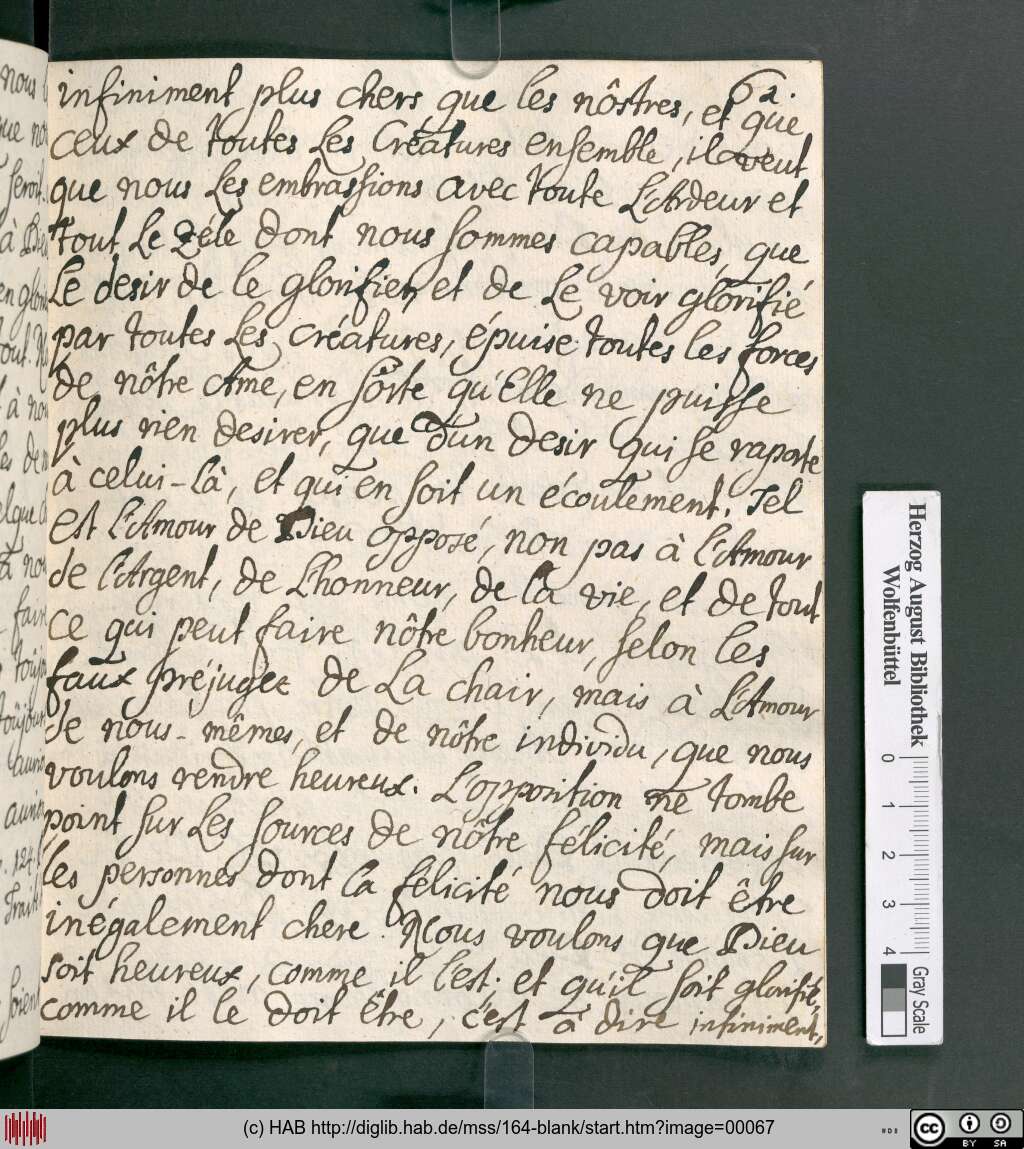 62.
infiniment plus chers que les nôstres, et que
ceux de toutes Les Créatures ensemble, il veut
que nous Les embrassions avec toute L'Ardeur et
tout Le Zéle dont nous sommes capables, que
Le desir de le glorifier, et de Le voir glorifié
par toutes Les créatures, épuise toutes les forces
de nôtre Ame, en sorte qu'Elle ne puisse
plus rien desirer, que d'un desir qui se raporte
à celui-Là, et qui en soit un écoulement. Tel
est L'Amour de Dieu opposé, non pas à L'Amour
de L'Argent, de L'honneur, de La vie, et de tout
ce qui peut faire nôtre bonheur, selon les
faux préjugez de La chair, mais à L'Amour
de nous-mêmes, et de nôtre individu, que nous
voulons rendre heureux. L'opposition ne tombe
point sur Les sources de nôtre félicité, mais sur
les personnes dont La félicité nous doit être
inégalement chere. Nous voulons que Dieu
soit heureux, comme il l'est; et qu'il soit glorifié,
comme il le doit être, c'est à dire infiniment,
Herzog August Bibliothek
Wolfenbüttel
0 1 2 3 4
Gray Scale
(c) HAB http://diglib.hab.de/mss/164-blank/start.htm?image=00067
cc BY SA